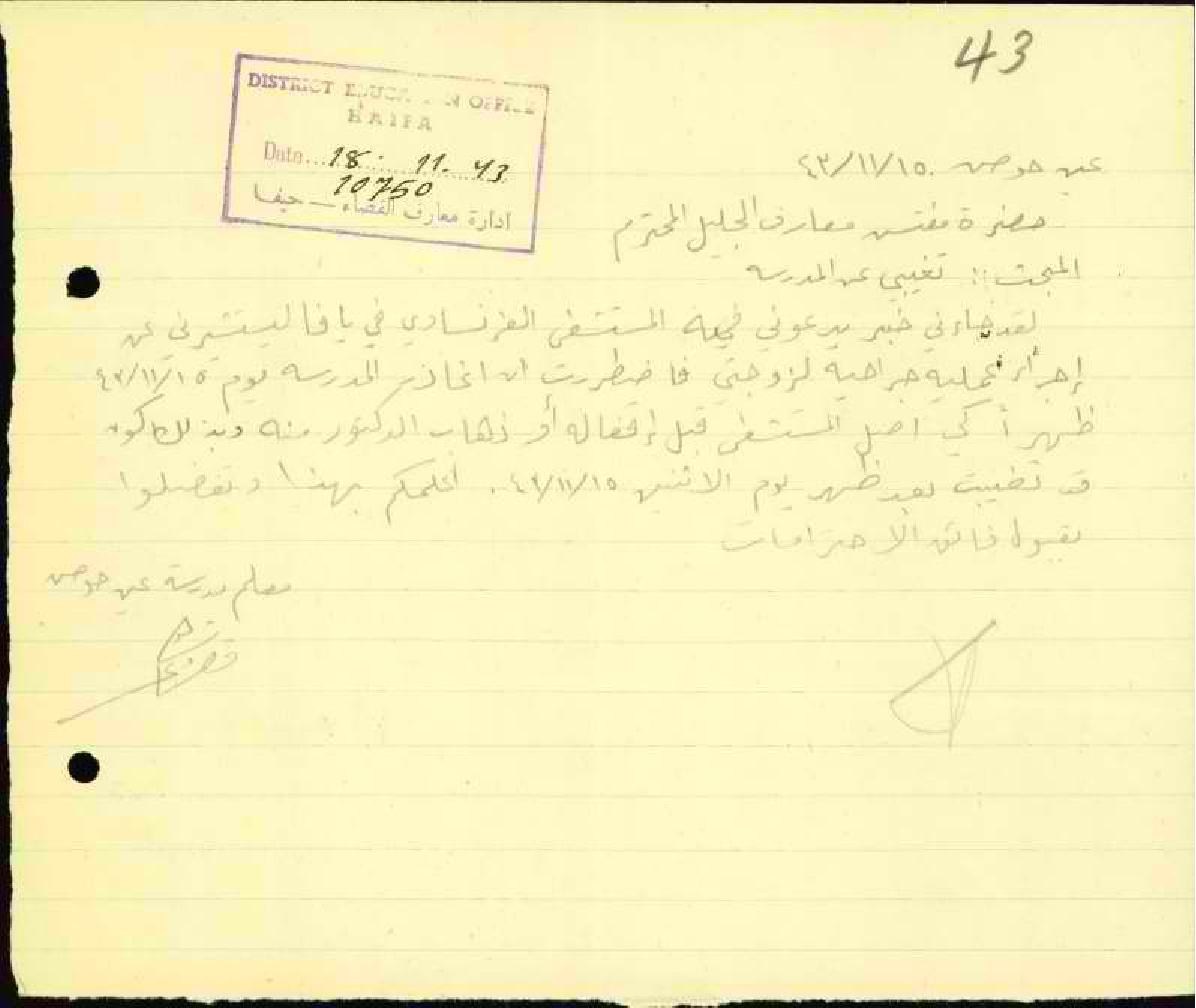 43
DISTRICT EDUCATION OFFICE
HAIFA
Date... 18. 11. 43
10750
ادارة معارف القضاء — حيفا
عين حوض ٤٣/١١/١٥
حضرة مفتش معارف الجليل المحترم
المبحث :: تغيبي عن المدرسه
لقد جاءني خبر يدعوني فيه المستشفى الفرنساوي في يافا ليستشيرني عن
إجراء عمليه جراحيه لزوجتي فاضطررت ان اغادر المدرسه يوم ٤٣/١١/١٥
ظهراً كي اصل المستشفى قبل إقفاله أو ذهاب الدكتور منه وبذلك اكون
قد تغيبت بعد ظهر يوم الاثنين ٤٣/١١/١٥. اعلمكم بهذا وتفضلوا
بقبول فائق الاحترامات
معلم مدرسة عين حوض